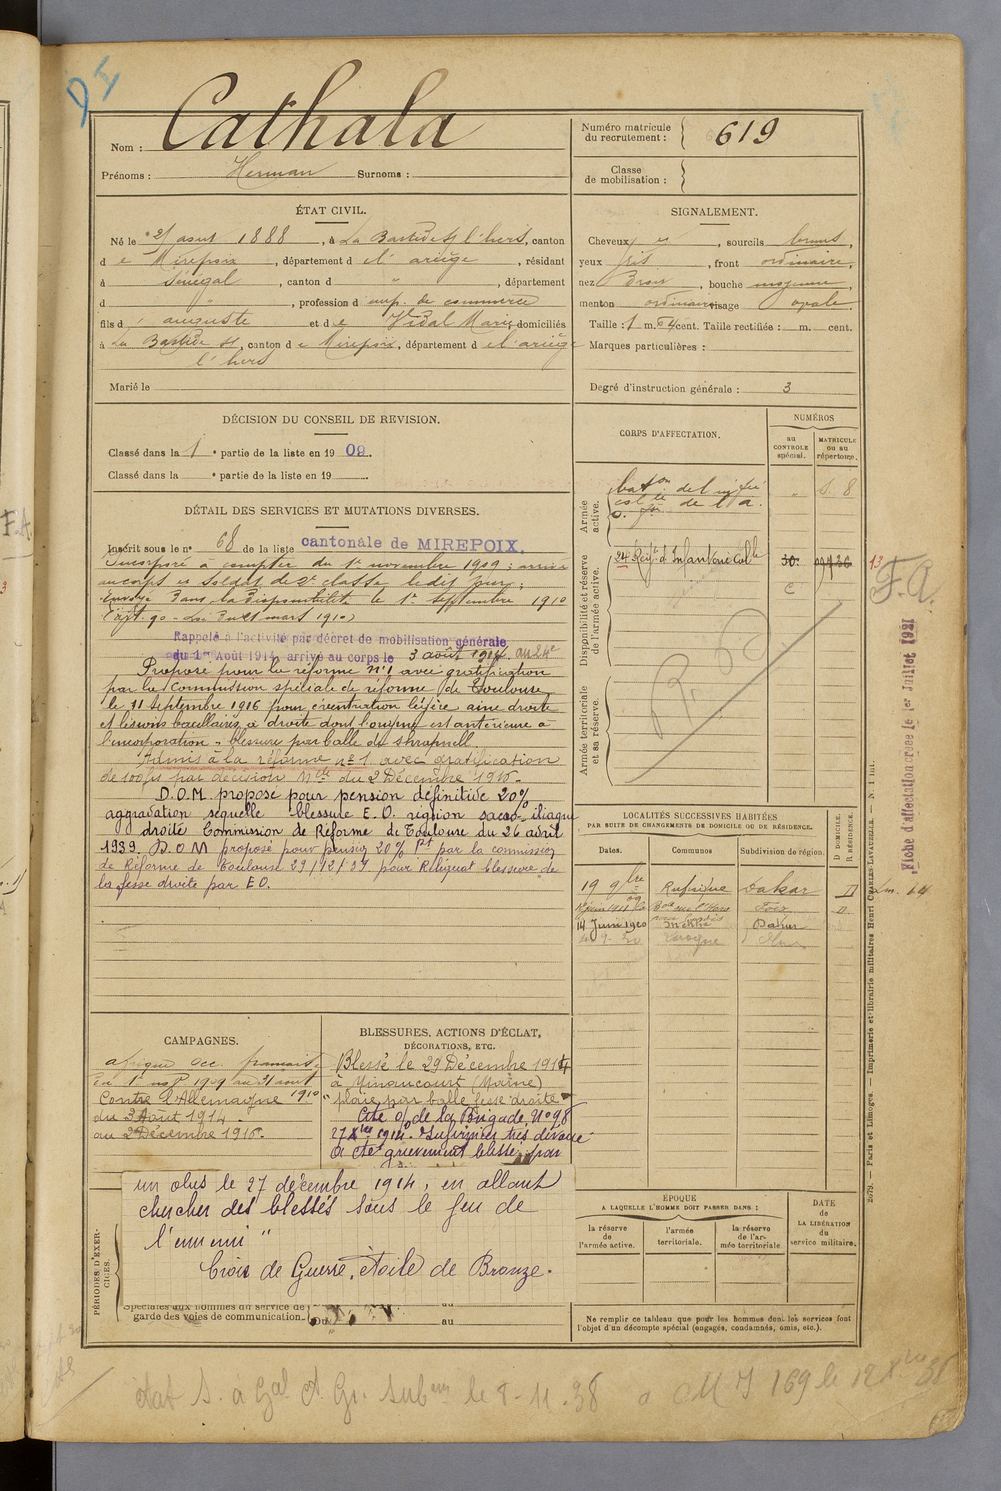 Cathala
Nom :
Prénoms : Herman Surnoms :
Numéro matricule
du recrutement : 619
Classe
de mobilisation :
ÉTAT CIVIL.
Né le 21 août 1888, à La Bastide s/ l'hers, canton
d e Mirepoix, département d e l'ariège, résidant
à Sénégal, canton d " , département
d " , profession d' emp. de commerce
fils d' auguste et d e Vidal Marie domiciliés
à La Bastide s/, canton d e Mirepoix, département d e l'ariège
l'hers
Marié le
SIGNALEMENT.
Cheveux, sourcils bruns,
yeux gris, front ordinaire,
nez, bouche moyenne,
menton ordinaire visage ovale.
Taille : 1 m. 54 cent. Taille rectifiée : m. cent.
Marques particulières :
Degré d'instruction générale : 3
DÉCISION DU CONSEIL DE REVISION.
Classé dans la 1 e partie de la liste en 19 09.
Classé dans la e partie de la liste en 19
DÉTAIL DES SERVICES ET MUTATIONS DIVERSES.
Inscrit sous le n° 68 de la liste cantonale de MIREPOIX.
Incorporé à compter du 1er novembre 1909 : arrivé
au corps et soldat de 2e classe le dit jour.
Envoyé dans la disponibilité le 1er septembre 1910
(art. 90 - Loi du 21 mars 1910)
Rappelé à l'activité par décret de mobilisation générale
du 1er Août 1914, arrivé au corps le 3 août 1914. au 24e
Proposé pour la réforme n°1 avec gratification
par la Commission spéciale de réforme de Toulouse
le 11 septembre 1916 pour éventration légère aine droite
et lésions bacillaires à droite dont l'origine est antérieure à
l'incorporation - blessure par balle de shrapnell.
Admis à la réforme n° 1 avec gratification
de 100 frs par décision Mlle du 2 Décembre 1916.
D.O.M. proposé pour pension définitive 20%
aggravation séquelle blessure E.O. région sacro-iliaque
droite Commission de Réforme de Toulouse du 26 avril
1939. D.O.M proposé pour pension 20% Pt par la commission
de Réforme de Toulouse 29/12/37 pour Reliquat blessure de
la fesse droite par E O.
CORPS D'AFFECTATION.
NUMÉROS
au
CONTROLE
spécial.
MATRICULE
ou au
répertoire.
Armée
active.
" S. 8
Disponibilité et réserve
de l'armée active.
24 Regt d'Infanterie Colle
30.
C
Armée territoriale
et sa réserve.
13
F.A.
Fiche d'affectation créée le 1er Juillet 1921
LOCALITÉS SUCCESSIVES HABITÉES
PAR SUITE DE CHANGEMENTS DE DOMICILE OU DE RÉSIDENCE.
Dates.
Communes
Subdivision de région.
D DOMICILE.
R RÉSIDENCE.
19 9bre 09 Rufisque Dakar D
Foix D.
14 Juin 1920 Dakar
CAMPAGNES.
afrique occ. française
du 1er nov 1909 au 31 aout
1910
Contre l'Allemagne
du 3 Août 1914
au 2 Décembre 1916.
BLESSURES, ACTIONS D'ÉCLAT,
DÉCORATIONS, ETC.
Blessé le 29 Décembre 1914
à Minaucourt (Marne)
"plaie par balle fesse droite"
Cité O/ de la Brigade N° 98
27 Xbre 1914. "Infirmier très dévoué
a été grièvement blessé par
un obus le 27 décembre 1914, en allant
chercher des blessés sous le feu de
l'ennemi"
Croix de Guerre, étoile de Bronze.
PÉRIODES D'EXER-
CICES.
Spéciales aux hommes du service de
garde des voies de communication.
au
Du au
ÉPOQUE
A LAQUELLE L'HOMME DOIT PASSER DANS :
la réserve
de
l'armée active.
l'armée
territoriale.
la réserve
de l'ar-
mée territoriale
DATE
de
LA LIBÉRATION
du
service militaire.
Ne remplir ce tableau que pour les hommes dont les services font
l'objet d'un décompte spécial (engagés, condamnés, omis, etc.).
2679. — Paris et Limoges. — Imprimerie et librairie militaires Henri CHARLES-LAVAUZELLE. — N. 1 int.